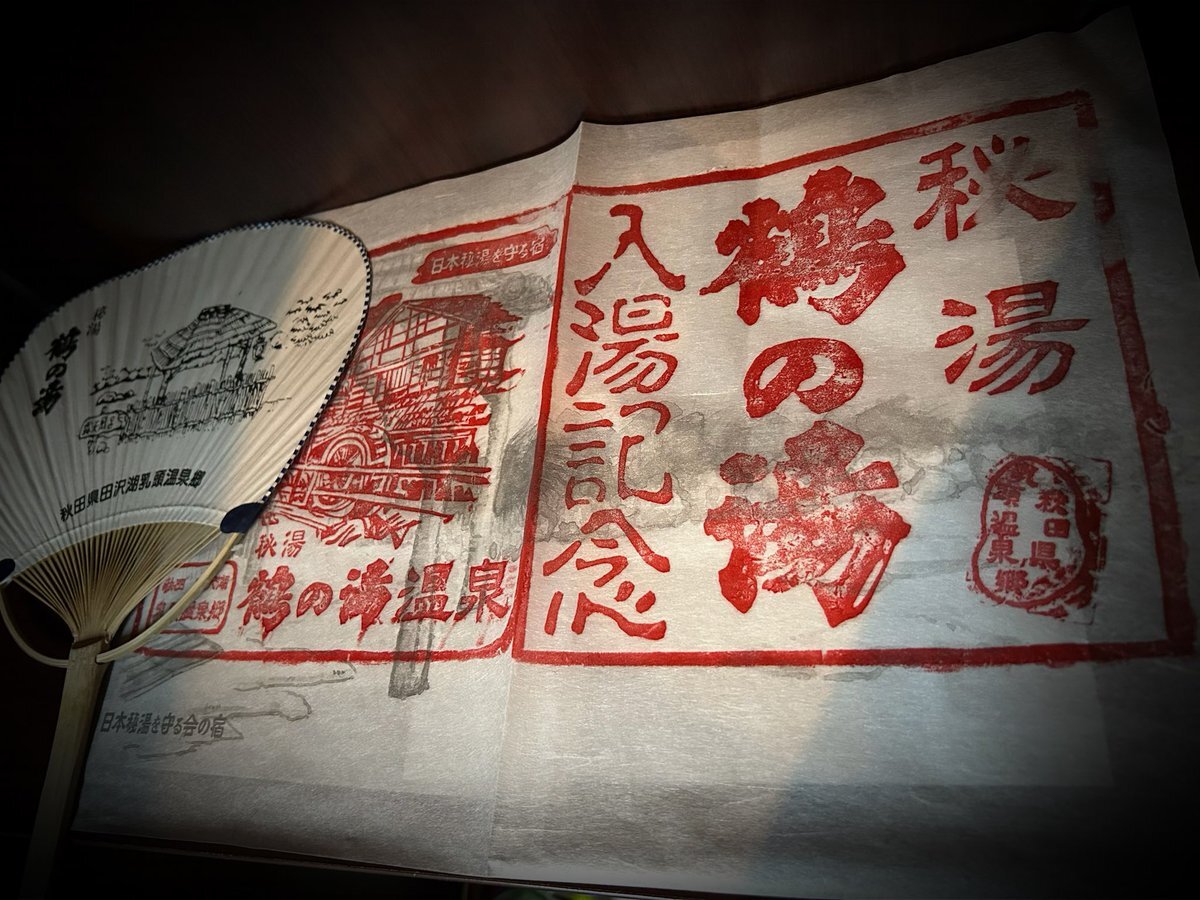 秘湯
鶴の湯
入湯記念
秋田県
乳頭温泉郷
日本秘湯を守る宿
秘湯
鶴の湯温泉
日本秘湯を守る会の宿
秘湯
鶴の湯
秋田県田沢湖乳頭温泉郷